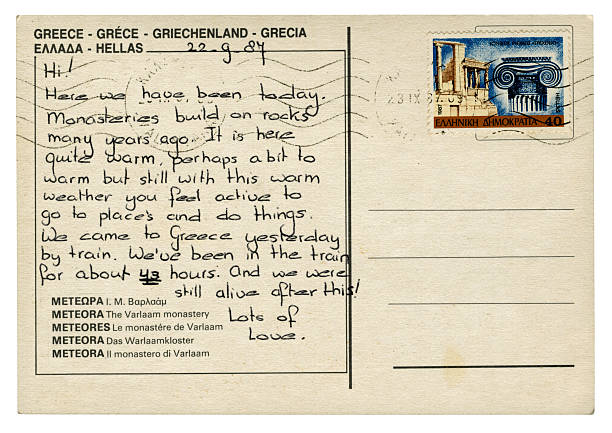 GREECE - GRÉCE - GRIECHENLAND - GRECIA
ΕΛΛΑΔΑ - HELLAS
22-9.87
Hi!
Here we have been today.
Monasteries build on rocks
many years ago. It is here
quite warm, perhaps a bit to
warm but still with this warm
weather you feel active to
go to places and do things.
We came to Greece yesterday
by train. We've been in the train
for about 43 hours. And we were
still alive after this!
Lots of
Love.
ΜΕΤΕΩΡΑ Ι. Μ. Βαρλαάμ
METEORA The Varlaam monastery
METEORES Le monastére de Varlaam
METEORA Das Warlaamkloster
METEORA Il monastero di Varlaam
23 IX 87. 09
ΕΛΛΗΝΙΚΗ ΔΗΜΟΚΡΑΤΙΑ 40